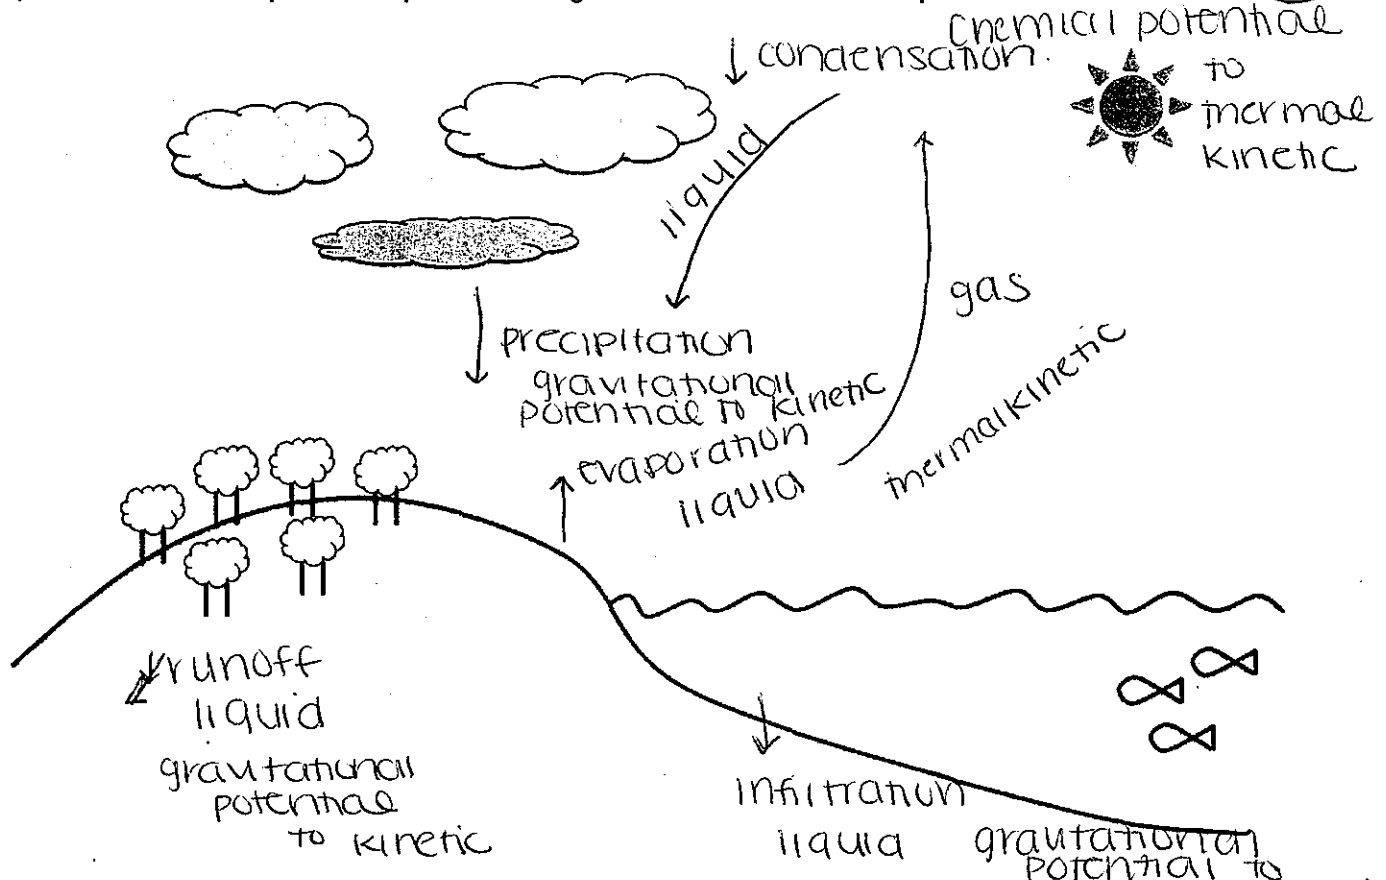 chemical potential
to
thermal
kinetic
condensation.
liquid
gas
precipitation
gravitational
potential to kinetic
evaporation
liquid
thermal kinetic
runoff
liquid
gravitational
potential
to kinetic
infiltration
liquid
gravitational
potential to